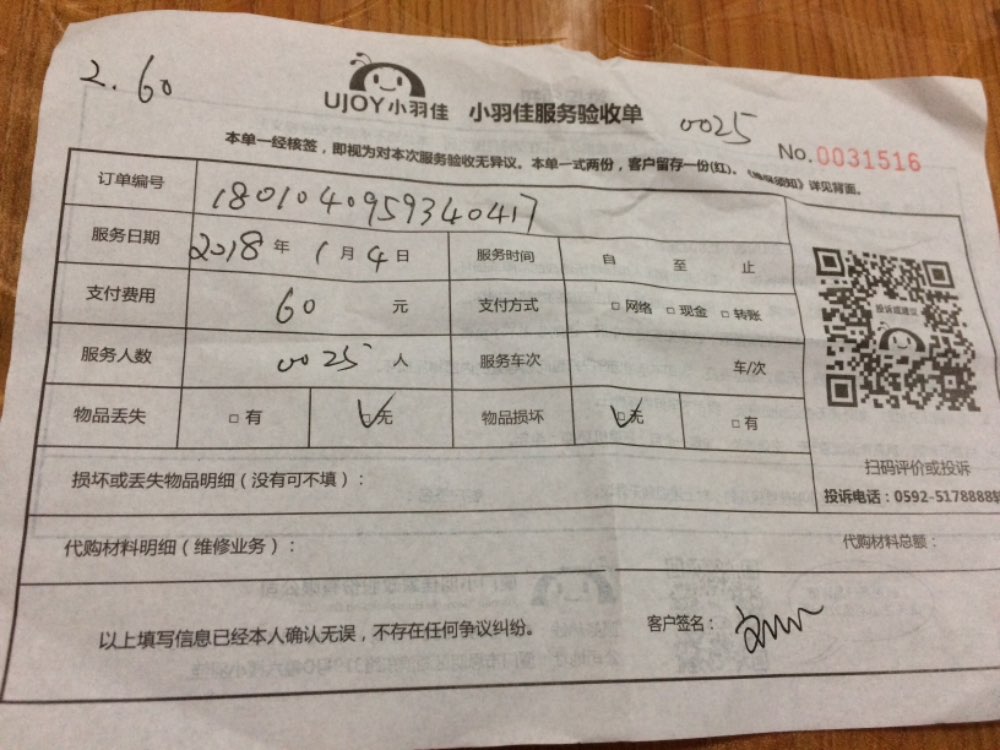 2.60
UJOY小羽佳 小羽佳服务验收单 0025
No.0031516
本单一经核签，即视为对本次服务验收无异议。本单一式两份，客户留存一份(红)。《维保须知》详见背面。
订单编号 1801040959340417
服务日期 2018年1月4日 服务时间 自 至 止
支付费用 60 元 支付方式 □网络 □现金 □转账
投诉或建议
服务人数 0025 人 服务车次 车/次
物品丢失 □有 ☑无 物品损坏 ☑无 □有
扫码评价或投诉
损坏或丢失物品明细（没有可不填）：
投诉电话：0592-5178888转
代购材料明细（维修业务）： 代购材料总额：
以上填写信息已经本人确认无误，不存在任何争议纠纷。 客户签名：